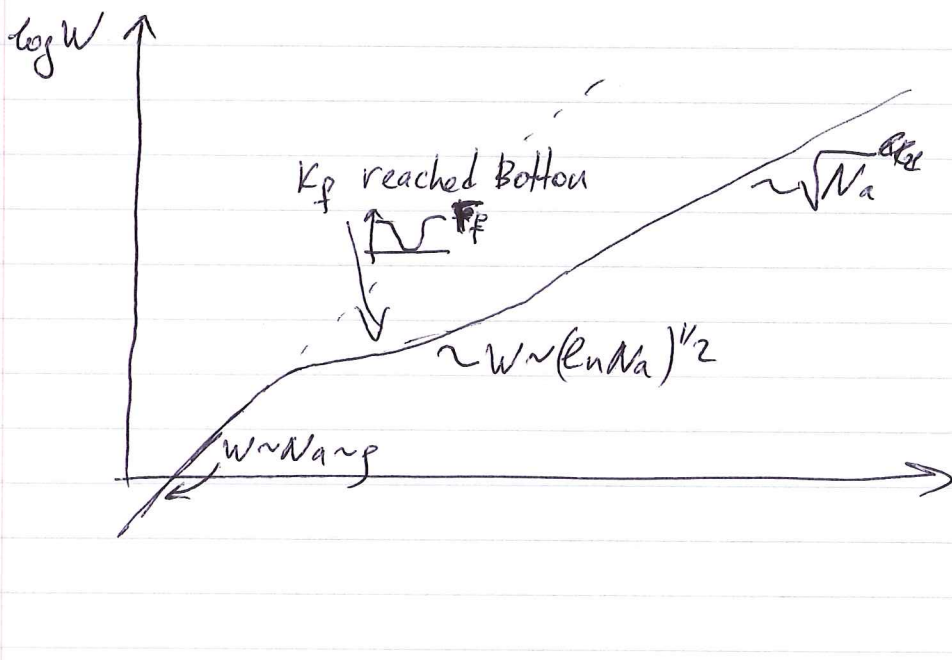 log W
K_f reached Bottom
F_f
~√Na
~W~(lnNa)^1/2
W~Na~ρ